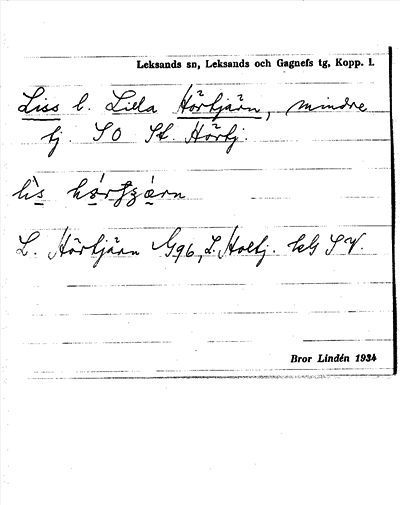 Leksands sn, Leksands och Gagnefs tg, Kopp. l.
Liss l. Lilla Hörtjärn, mindre
tj. SO St. Hörtj.
L. Hörtjärn G96, L. Hoetj. kls SV.
Bror Lindén 1934